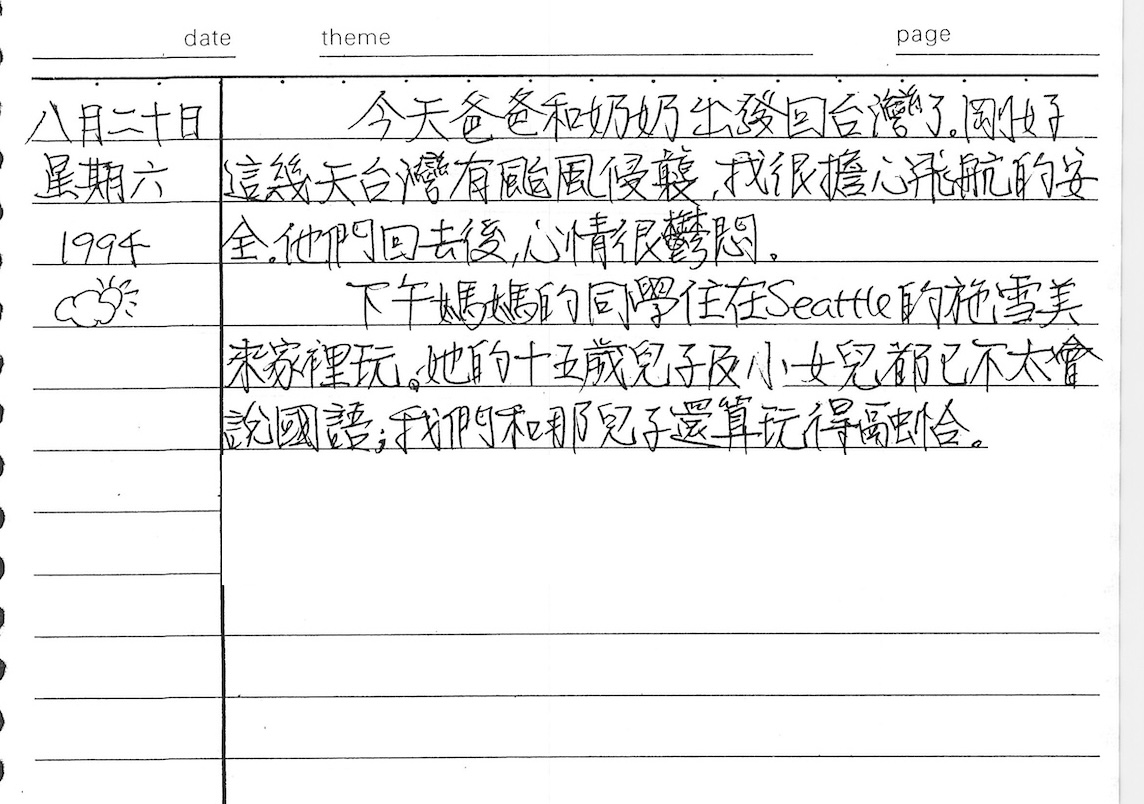 date theme page
八月二十日 今天爸爸和奶奶出發回台灣了。剛好
星期六 這幾天台灣有颱風侵襲,我很擔心飛航的安
1994 全。他們回去後,心情很鬱悶。
下午媽媽的同學住在Seattle的施雪美
來家裡玩。她的十五歲兒子及小女兒都已不太會
說國語;我們和那兒子還算玩得融恰。